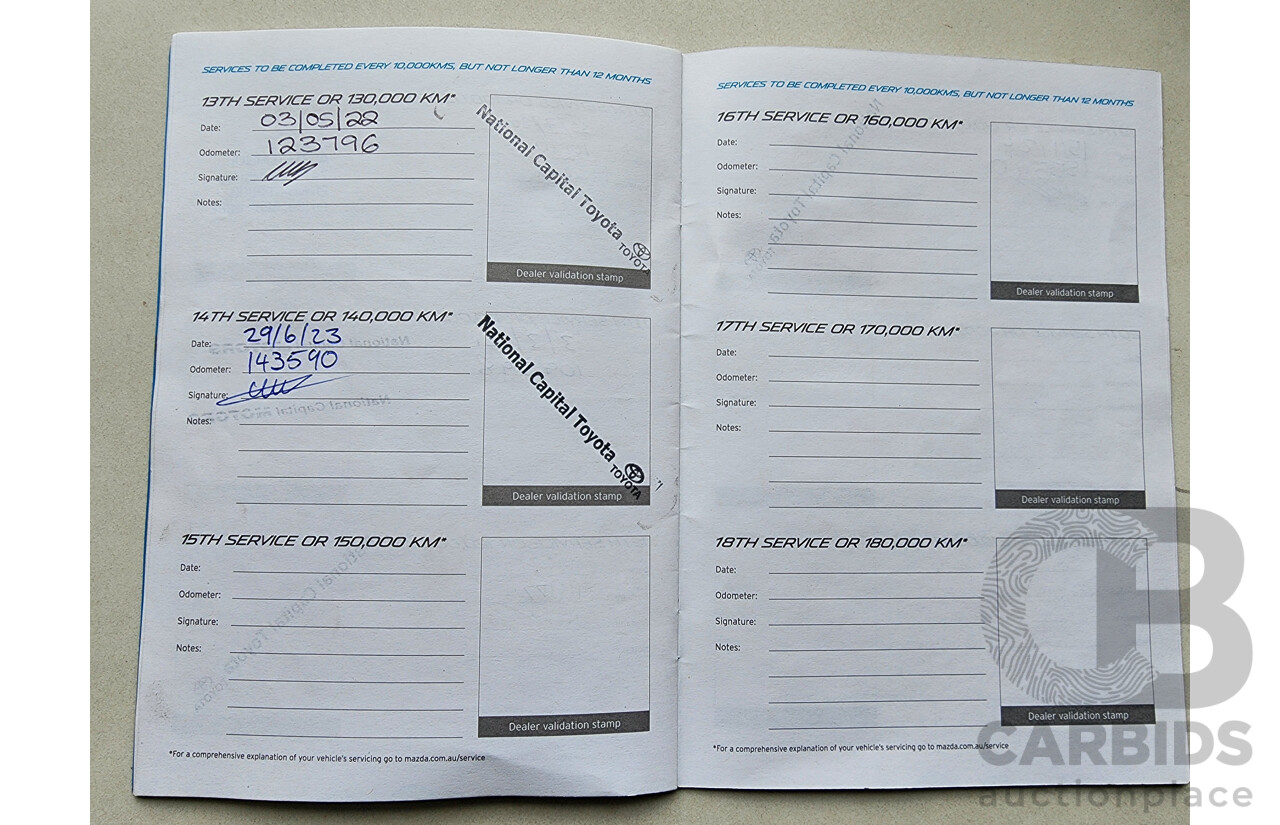 SERVICES TO BE COMPLETED EVERY 10,000KMS, BUT NOT LONGER THAN 12 MONTHS
13TH SERVICE OR 130,000 KM*
Date: 03/05/22
Odometer: 123796
Signature:
Notes:
National Capital Toyota
TOYOTA
Dealer validation stamp
14TH SERVICE OR 140,000 KM*
Date: 29/6/23
Odometer: 143590
Signature:
Notes:
National Capital Toyota
TOYOTA
Dealer validation stamp
15TH SERVICE OR 150,000 KM*
Date:
Odometer:
Signature:
Notes:
Dealer validation stamp
*For a comprehensive explanation of your vehicle's servicing go to mazda.com.au/service
SERVICES TO BE COMPLETED EVERY 10,000KMS, BUT NOT LONGER THAN 12 MONTHS
16TH SERVICE OR 160,000 KM*
Date:
Odometer:
Signature:
Notes:
Dealer validation stamp
17TH SERVICE OR 170,000 KM*
Date:
Odometer:
Signature:
Notes:
Dealer validation stamp
18TH SERVICE OR 180,000 KM*
Date:
Odometer:
Signature:
Notes:
Dealer validation stamp
*For a comprehensive explanation of your vehicle's servicing go to mazda.com.au/service
CB
CARBIDS
auctionplace